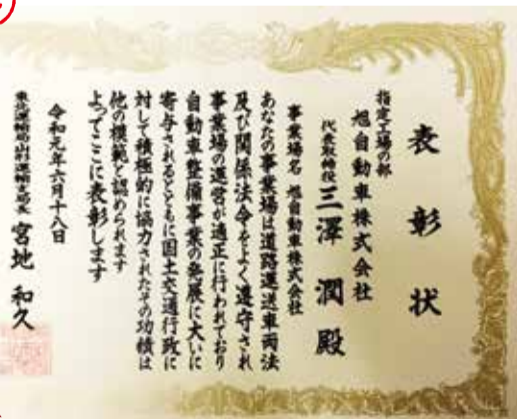 表彰状
指定工場の部
旭自動車株式会社
代表取締役 三澤 潤 殿
事業場名 旭自動車株式会社
あなたの事業場は道路運送車両法
及び関係法令をよく遵守され
事業場の運営が適正に行われており
自動車整備事業の発展に大いに
寄与されるとともに国土交通行政に
対して積極的に協力されたその功績は
他の模範と認められます
よってここに表彰します
令和元年六月十八日
東北運輸局山形運輸支局長 宮地 和久